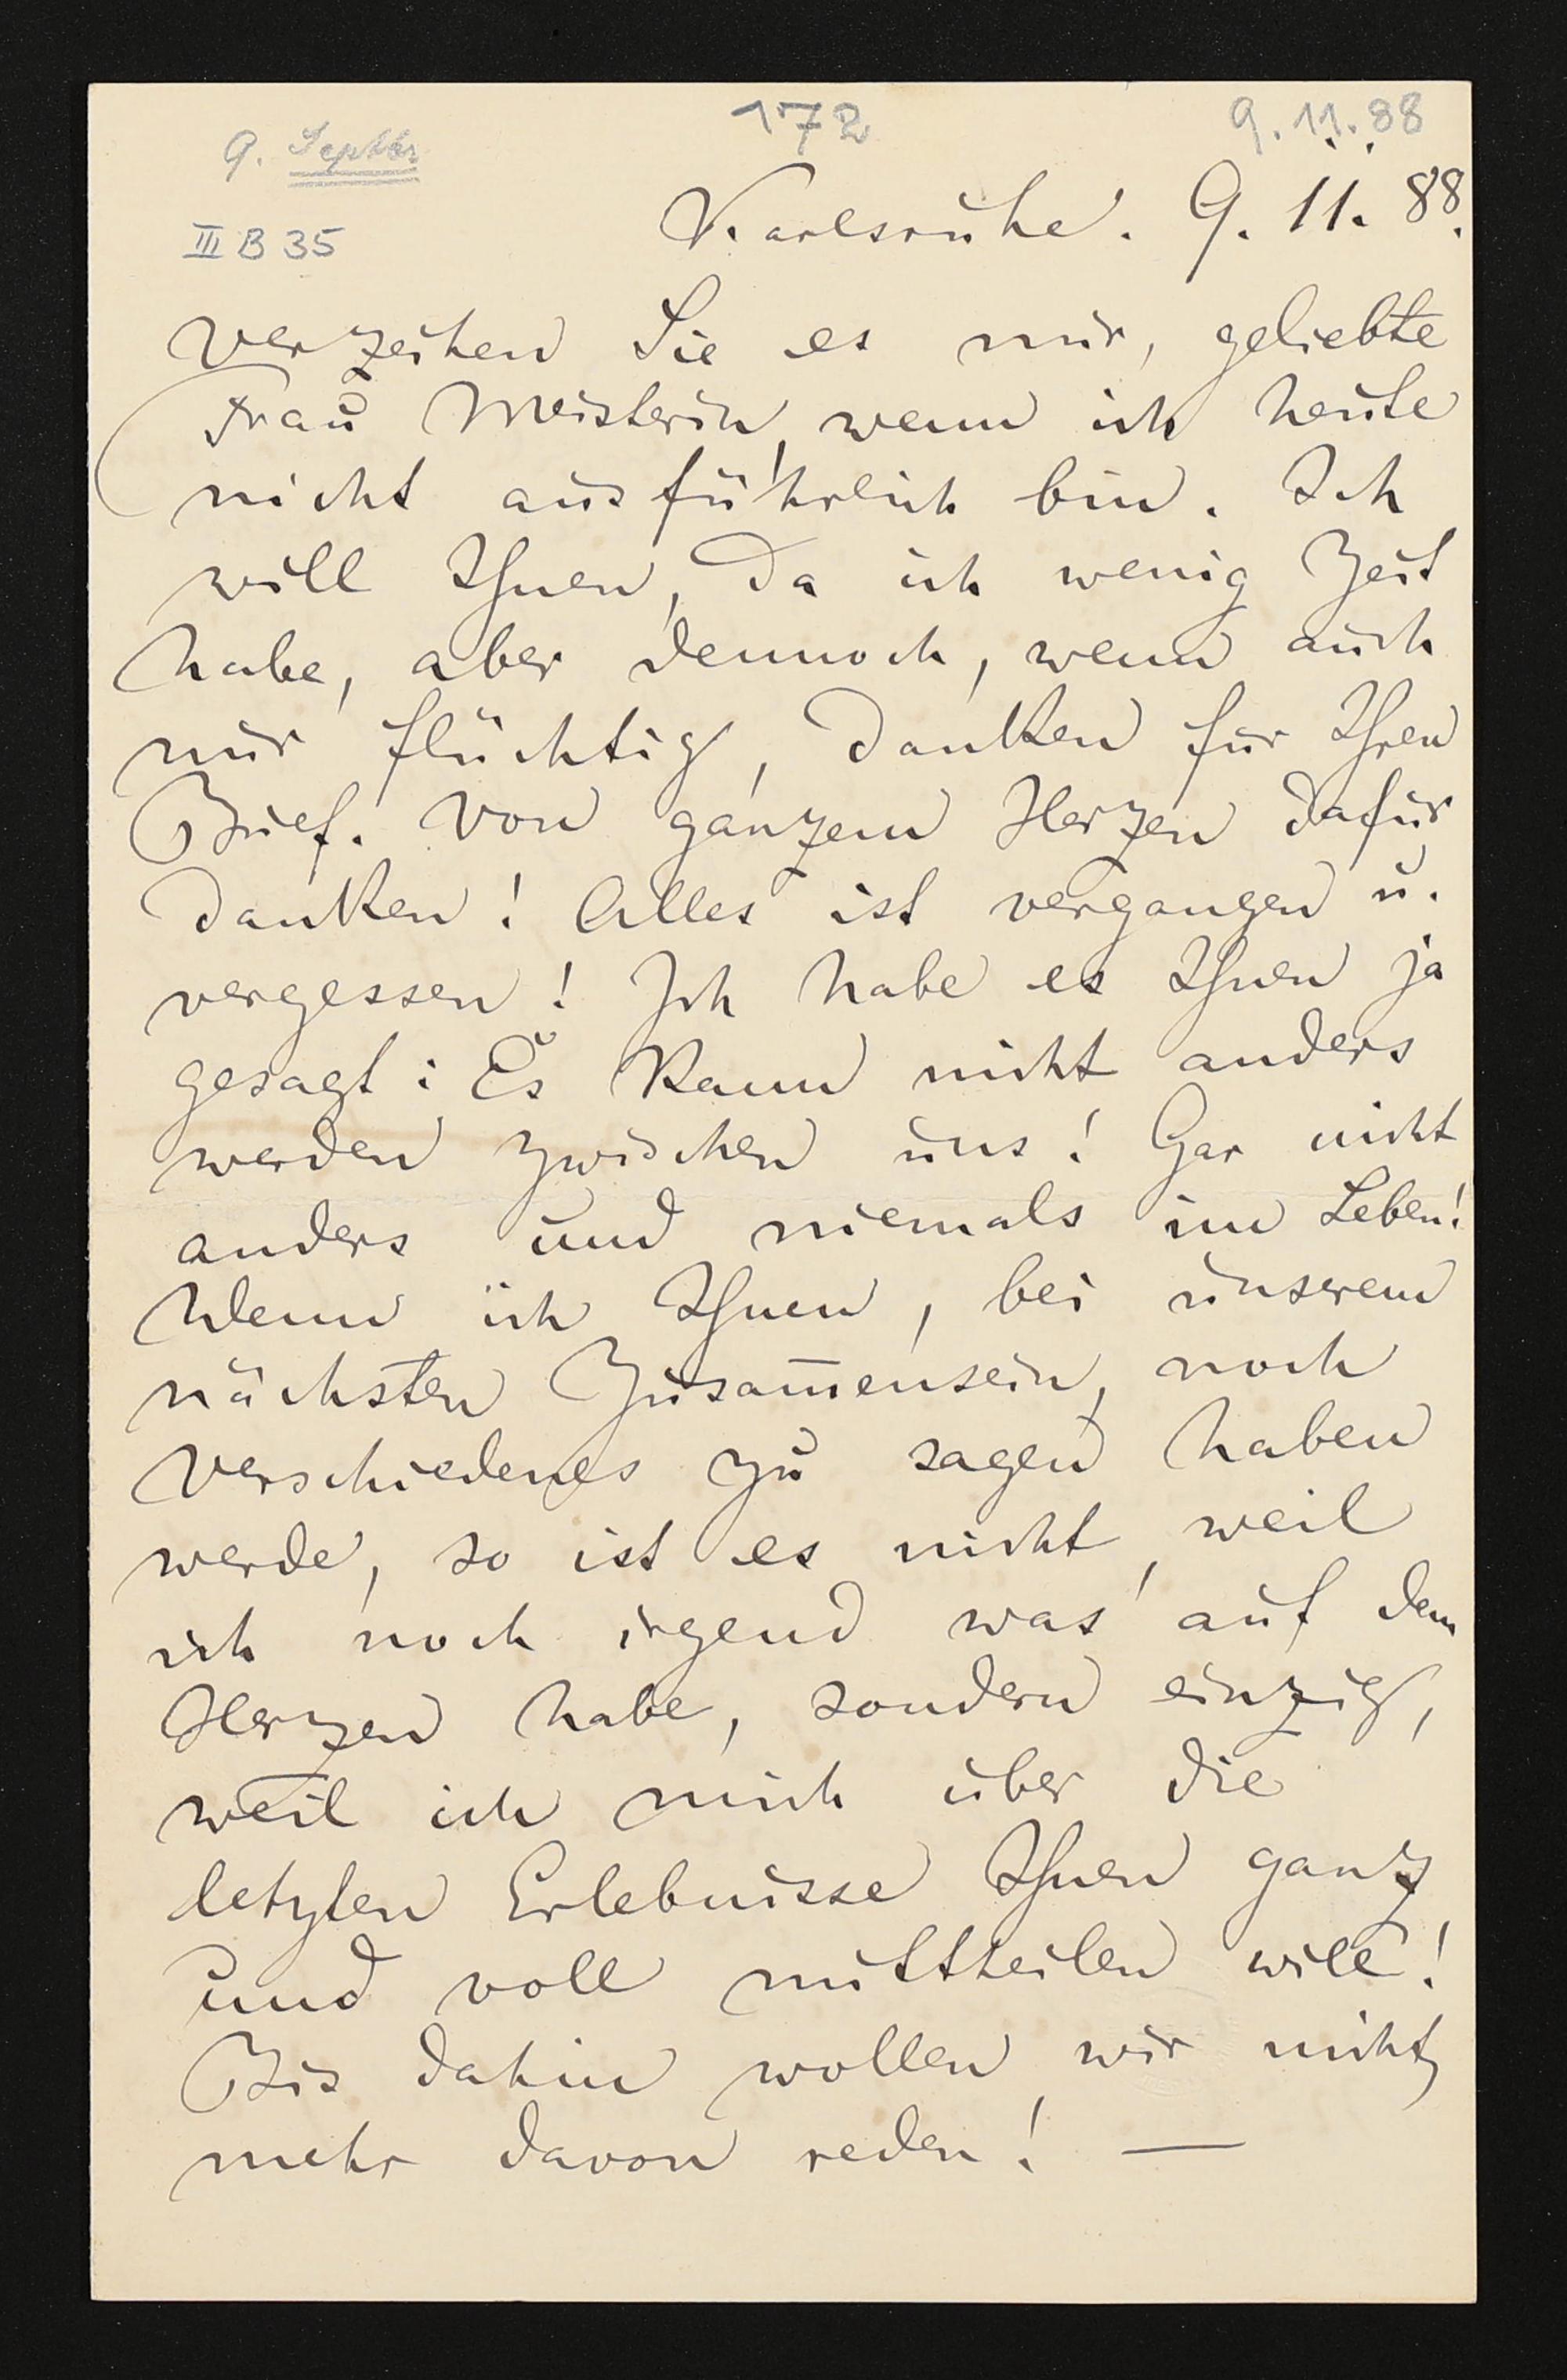 172
9. 11. 88
9. Septbr
III B 35
Karlsruhe. 9. 11. 88.
Verzeihen Sie es mir, geliebte
Frau Meisterin, wenn ich heute
nicht ausführlich bin. Ich
will Ihnen, da ich wenig Zeit
habe, aber dennoch, wenn auch
nur flüchtig, danken für Ihren
Brief. Von ganzem Herzen dafür
danken! Alles ist vergangen u.
vergessen! Ich habe es Ihnen ja
gesagt: Es kann nicht anders
werden zwischen uns! Gar nicht
anders und niemals im Leben!
Wenn ich Ihnen, bei unserem
nächsten Zusam̅ensein, noch
Verschiedenes zu sagen haben
werde, so ist es nicht, weil
ich noch irgend was auf dem
Herzen habe, sondern einzig,
weil ich mich über die
letzten Erlebnisse Ihnen ganz
und voll mittheilen will!
Bis dahin wollen wir nichts
mehr davon reden! —